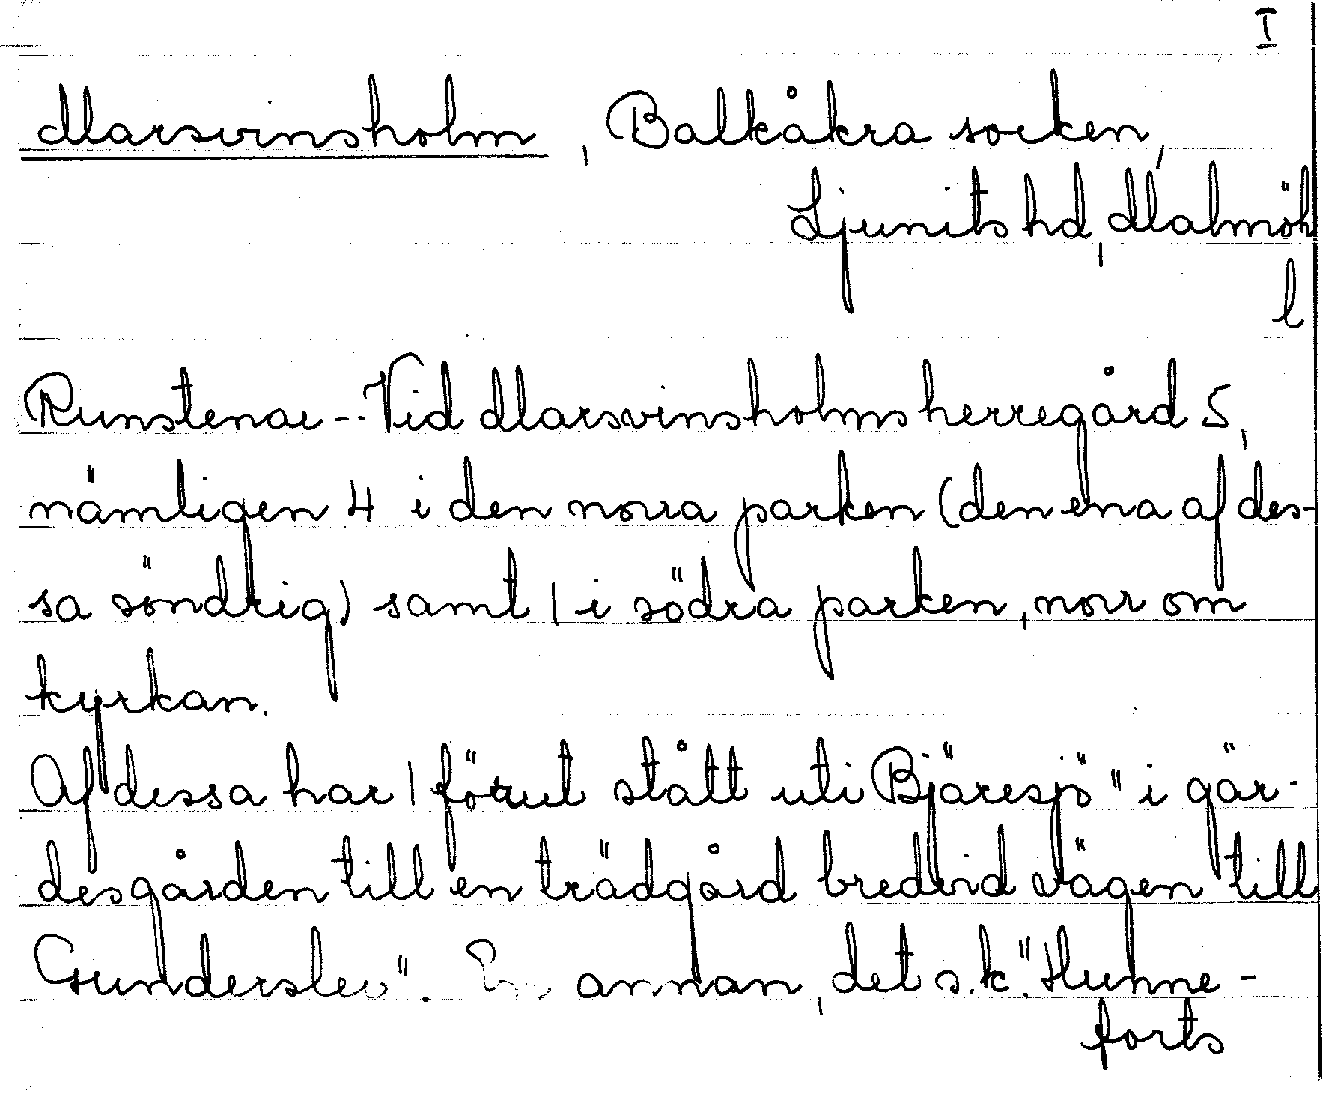 I
Marsvinsholm, Balkåkra socken,
Ljunits hd, Malmöh
l
Runstenar -- Vid Marsvinsholms herregård 5,
nämligen 4 i den norra parken (den ena af des-
sa söndrig) samt 1 i södra parken, norr om
kyrkan.
Af dessa har 1 förut stått uti Bjäresjö "i gär-
desgården till en trädgård bredvid vägen till
Gunderslev". En annan, det s.k. "Huhne-
forts